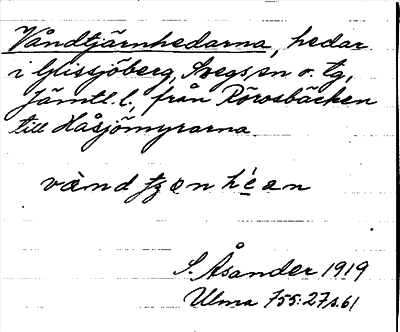 Våndtjärnhedarna, hedar
i Glissjöberg, Svegs sn o. tg,
Jämtl. l., från Rörosbäcken
till Håsjömyrarna
vànd tʒən hé̱ən
S. Åsander 1919
Ulma 755:27 s. 61